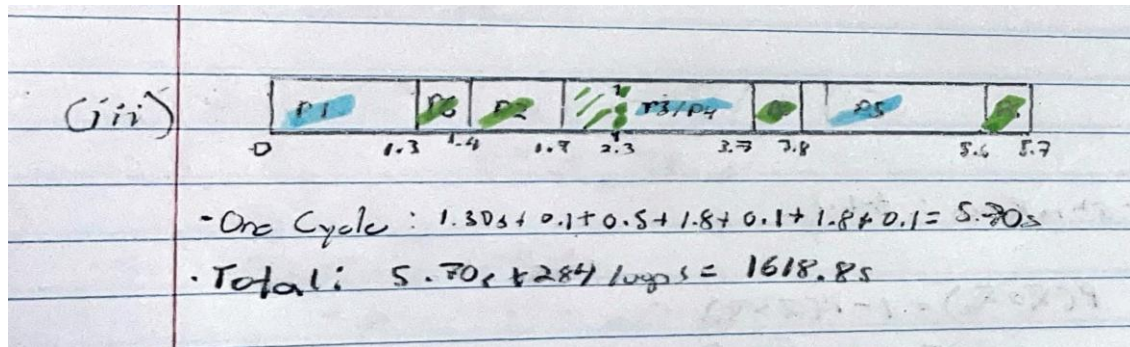 (iii) P1 P6 P2 P3/P4 P5
0 1.3 1.4 1.9 2.3 3.7 3.8 5.6 5.7
- One Cycle : 1.30s + 0.1 + 0.5 + 1.8 + 0.1 + 1.8 + 0.1 = 5.70s
· Total: 5.70s * 284 loops = 1618.8s